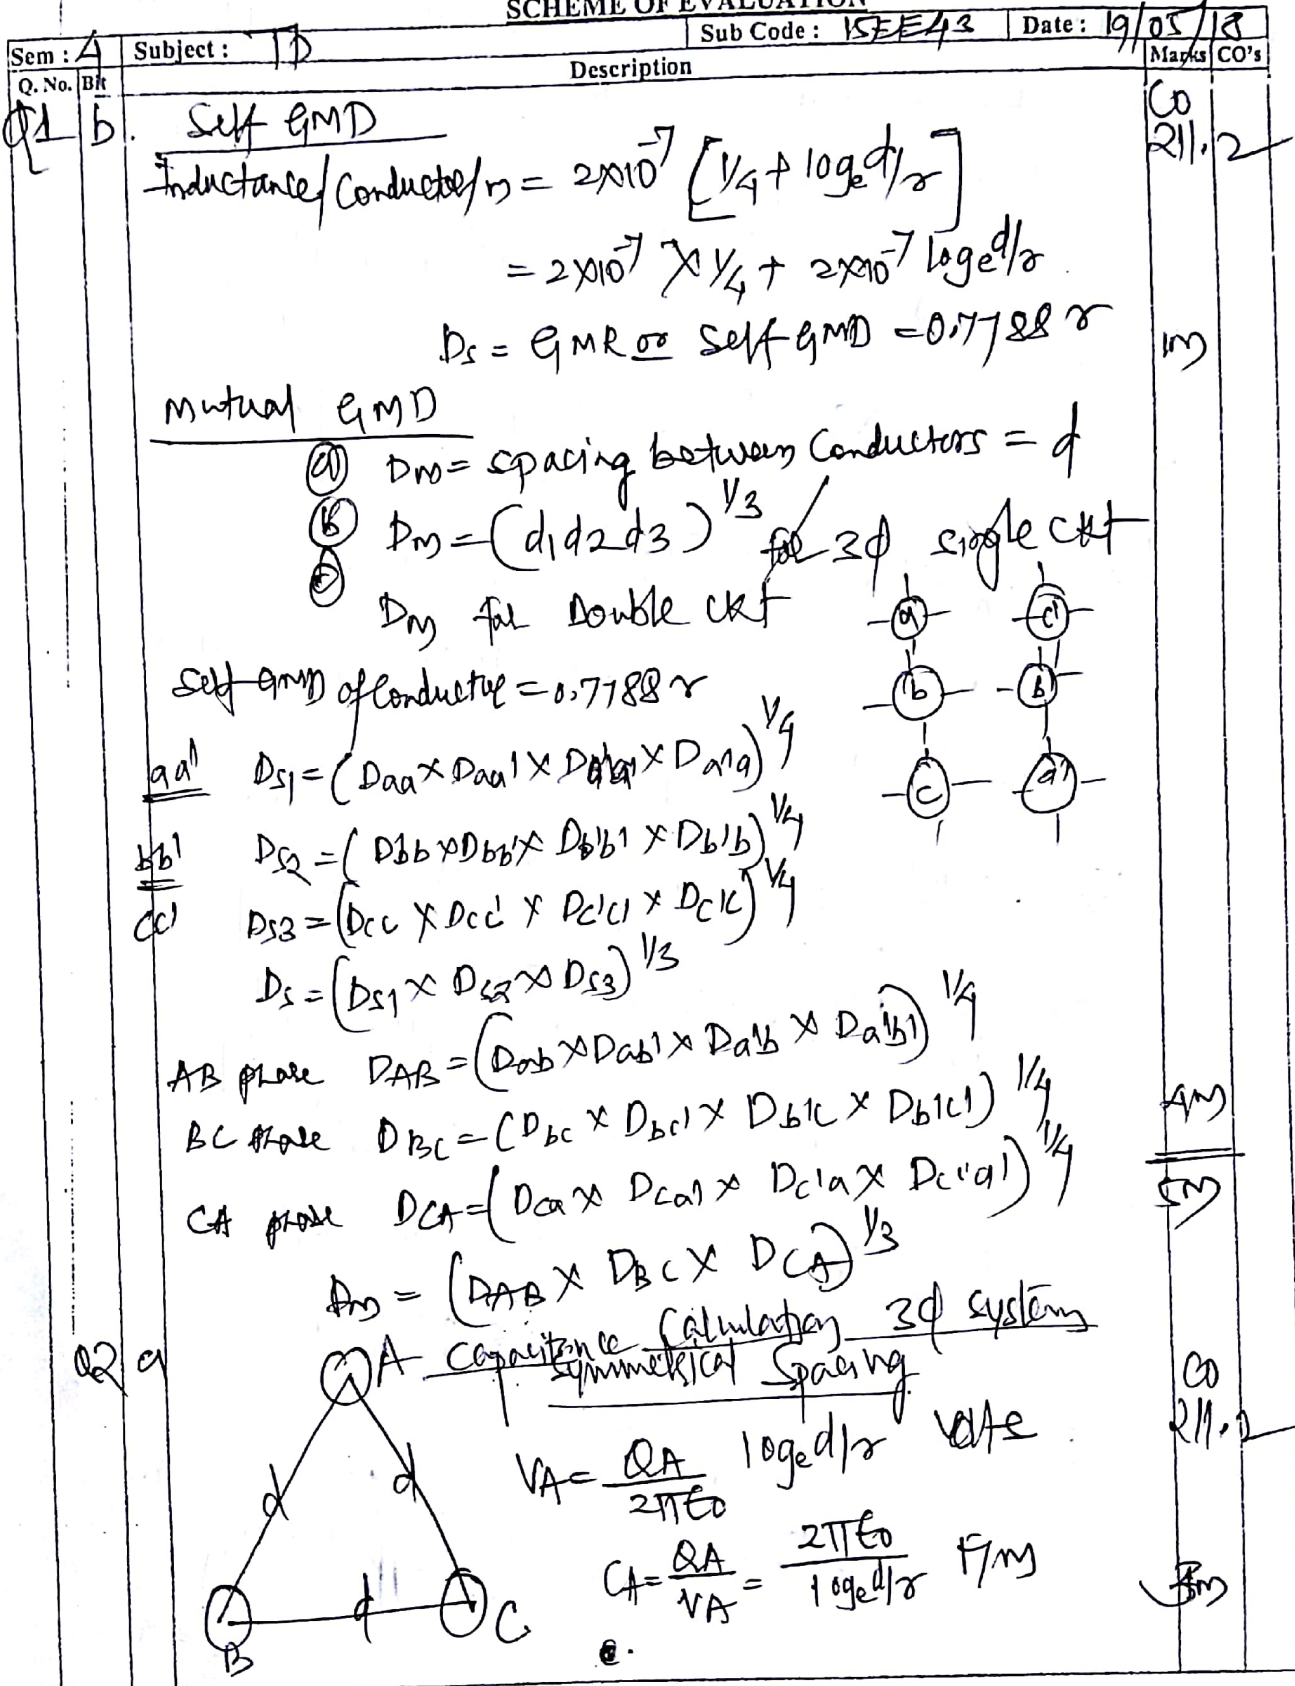 SCHEME OF EVALUATION
Sub Code : 15EE43 Date : 19/05/18
Sem : 4 Subject : TD
Q. No. Bit Description Marks CO's
Q1 b. Self GMD CO 211.2
Inductance/Conductor/m = 2×10⁻⁷ [1/4 + logₑ d/r]
= 2×10⁻⁷ × 1/4 + 2×10⁻⁷ logₑ d/r
Ds = GMR or Self GMD = 0.7788 r 1m
Mutual GMD
(a) Dm = spacing between Conductors = d
(b) Dm = (d1d2d3)^1/3 for 3ϕ single ckt
(c) Dm for Double ckt
a c'
Self GMD of Conductor = 0.7788 r b b'
aa' Ds1 = (Daa × Daa' × Da'a' × Da'a)^1/4 c a'
bb' Ds2 = (Dbb × Dbb' × Db'b' × Db'b)^1/4
cc' Ds3 = (Dcc × Dcc' × Dc'c' × Dc'c)^1/4
Ds = (Ds1 × Ds2 × Ds3)^1/3
AB phase DAB = (Dab × Dab' × Da'b × Da'b')^1/4
BC phase DBC = (Dbc × Dbc' × Db'c × Db'c')^1/4 4m
CA phase DCA = (Dca × Dca' × Dc'a × Dc'a')^1/4 5m
Dm = (DAB × DBC × DCA)^1/3
Q2 a A Capacitance Calculation 3ϕ system
Symmetrical Spacing CO 211.2
VA = QA/2πε0 logₑ d/r volts
d d
CA = QA/VA = 2πε0/logₑ d/r F/m
B d C